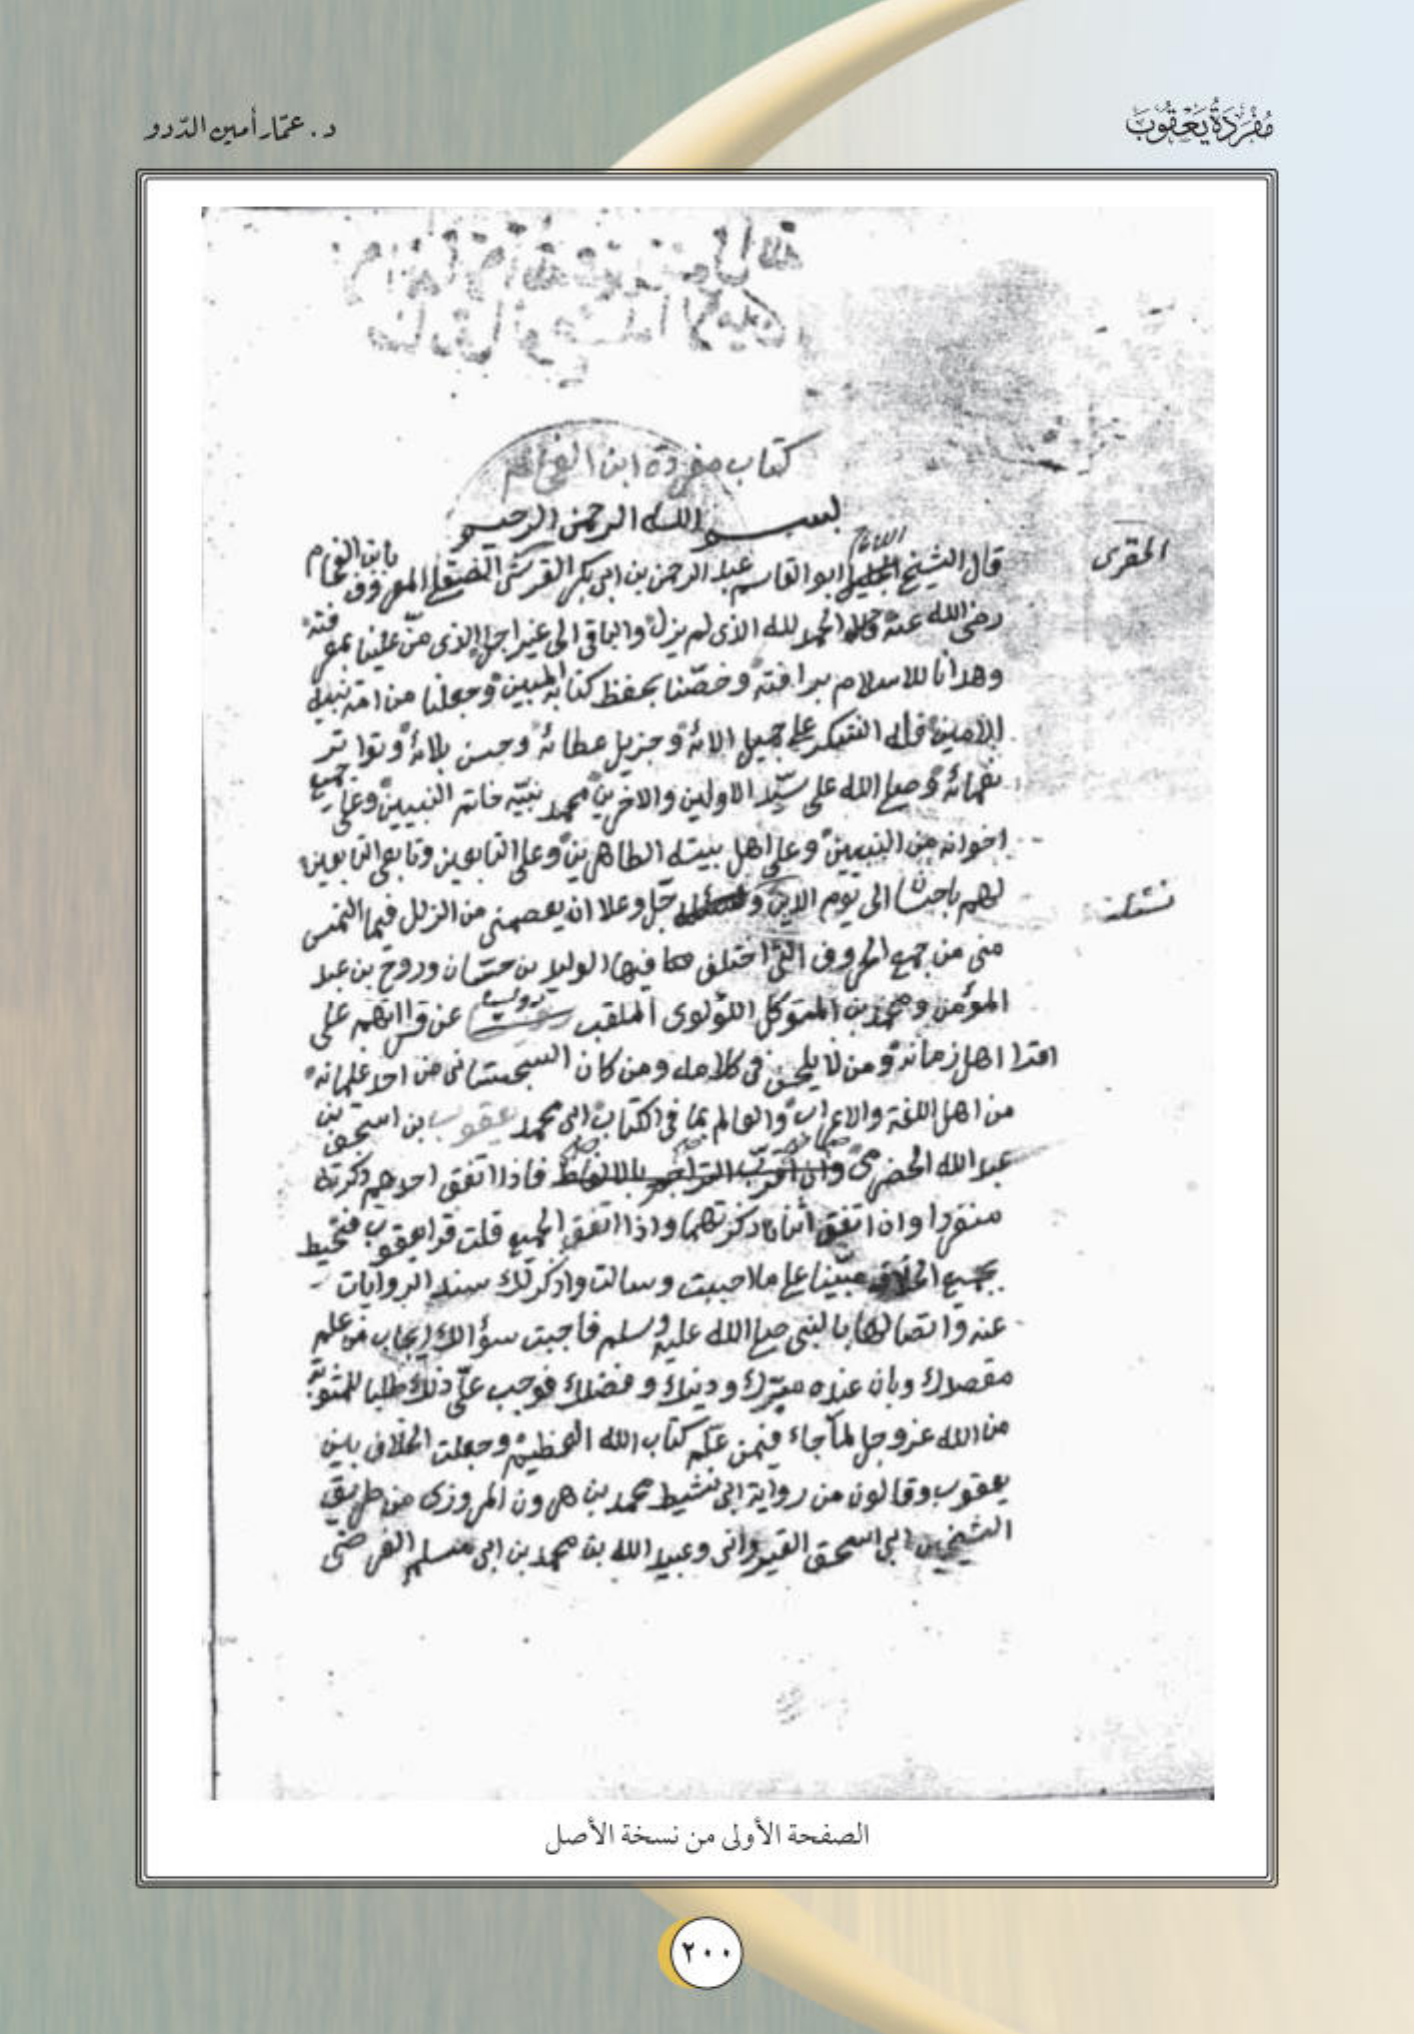 مُفْرَدَةُ يَعْقُوبَ
د. عمّار أمين الدّدو
كتاب مفردة ابن الفحام
بسم الله الرحمن الرحيم
المقرى
قال الشيخ الجليل الامام ابو القاسم عبد الرحمن بن ابى بكر القرشى الصقلى المعروف بابن الفحام
رضى الله عنه الحمد لله الذى لم يزل والباقى الى غير اجل الذى منّ علينا بمعرفته
وهدانا للاسلام برافته وخصّنا بحفظ كتابه المبين وجعلنا من امة نبيه
الامين فله الشكر على جميل الائه وجزيل عطائه وحسن بلائه وتواتر
نعمائه وصلى الله على سيّد الاولين والاخرين محمد نبيّه خاتم النبيين وعلى جميع
اخوانه من النبيين وعلى اهل بيته الطاهرين وعلى التابعين وتابعى التابعين
لهم باحسان الى يوم الدين جلّ وعلا ان يعصمنى من الزلل فيما التمس
منى من جمع الحروف التى اختلف فيها الوليد بن حسّان وروح بن عبد
المؤمن ومحمد بن المتوكل اللؤلوى الملقب رويس عن قراتهم على
اقرا اهل زمانه ومن لا يلحن فى كلامه ومن كان السجستانى من احد غلمانه
من اهل اللغة والاعراب والعالم بما فى الكتاب ابى محمد يعقوب بن اسحق بن
عبد الله الحضرمى وان اقرّب التراجم بالالفاظ فاذا اتفق احدهم ذكرته
منفردا وان اتفق اثنان ذكرتهما واذا اتفق الجميع قلت قرا يعقوب فتحيط
بجميع الخلاف مبيّنا على ما احببت وسالت واذكر لك سند الروايات
عنه واتصالها بالنبى صلى الله عليه وسلم فاجبت سؤالك ايجاب من علم
مقصدك وبان عنده ميّزك ودينك وفضلك فوجب علىّ ذلك طلبا للمثوبة
من الله عز وجل لما جاء فيمن علّم كتاب الله العظيم وجعلت الخلاف بين
يعقوب وقالون من رواية ابى نشيط محمد بن هرون المروزى من طريق
الشيخين ابى اسحق القيروانى وعبيد الله بن محمد بن ابى مسلم الفرضى
الصفحة الأولى من نسخة الأصل
٢٠٠